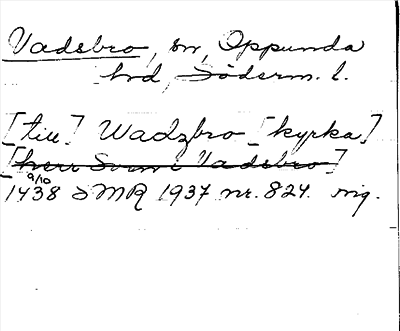 Vadsbro, sn, Oppunda
hrd, Söderm. l.
[till] Wadzbro [kyrka]
[herr Sven i Vadsbro]
9/10
1438 SMR 1937 nr. 824. orig.